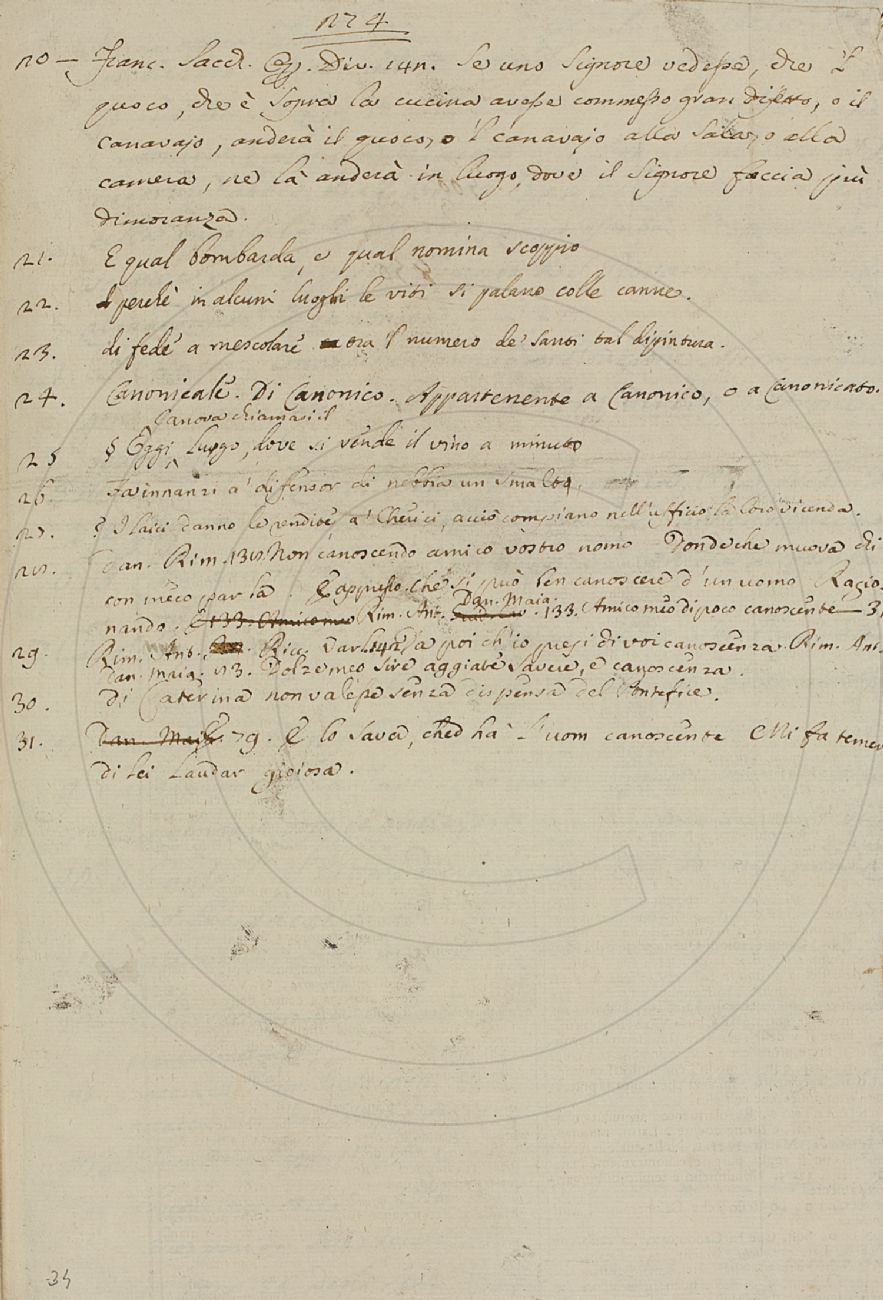 274
20 — Franc. Sacch. Op. Div. 141. Se uno Signore vedesse, che 'l
quoco, che è sopra la cucina avesse commesso gran difetto, o il
canavajo, anderà il quoco, o 'l canavajo alla sala, o alla
camera, ne là anderà in luogo, dove il Signore faccia più
dimoranza.
21. E qual bombarda, e qual nomina scoppio
22. perchè in alcuni luoghi le viti si palano colle canne.
23. di fede a mescolare tra 'l numero de' santi tal dipintura.
24. Canonicale. Di Canonico. Appartenente a Canonico, o a Canonicato.
Canova chiamasi il
25 § Oggi luogo, dove si vende il vino a minuto
26. Fa innanzi a' difensor di nebbia un smalto.
27. § I laici danno le rendite a' Cherici, acciò compiano nell'ufficio la loro vicenda.
28. Dan. Rim. Non canoscendo amico vostro nomo Donde che muova chi
con meco parla. E appresso. Che si può ben canoscere d'un uomo Ragio-
Dan. Maia.
nando. 133. Amico meo Rim. Ant. 133. Amico meo di poco canoscente — 3,
29. Rim. Ant. Ricc. Varl. 142. La poi ch'io presi di voi canoscenza. Rim. Ant.
Dan. Maia. 73. Dolze meo sire aggiate savere, e canoscenza.
30. di Caterina non valesse senza dispensa del Pontefice.
31. Dan. Maia. 79. E lo savei, ched ha l'uom canoscente Mi fa temer
di lei laudar gioiosa.
34